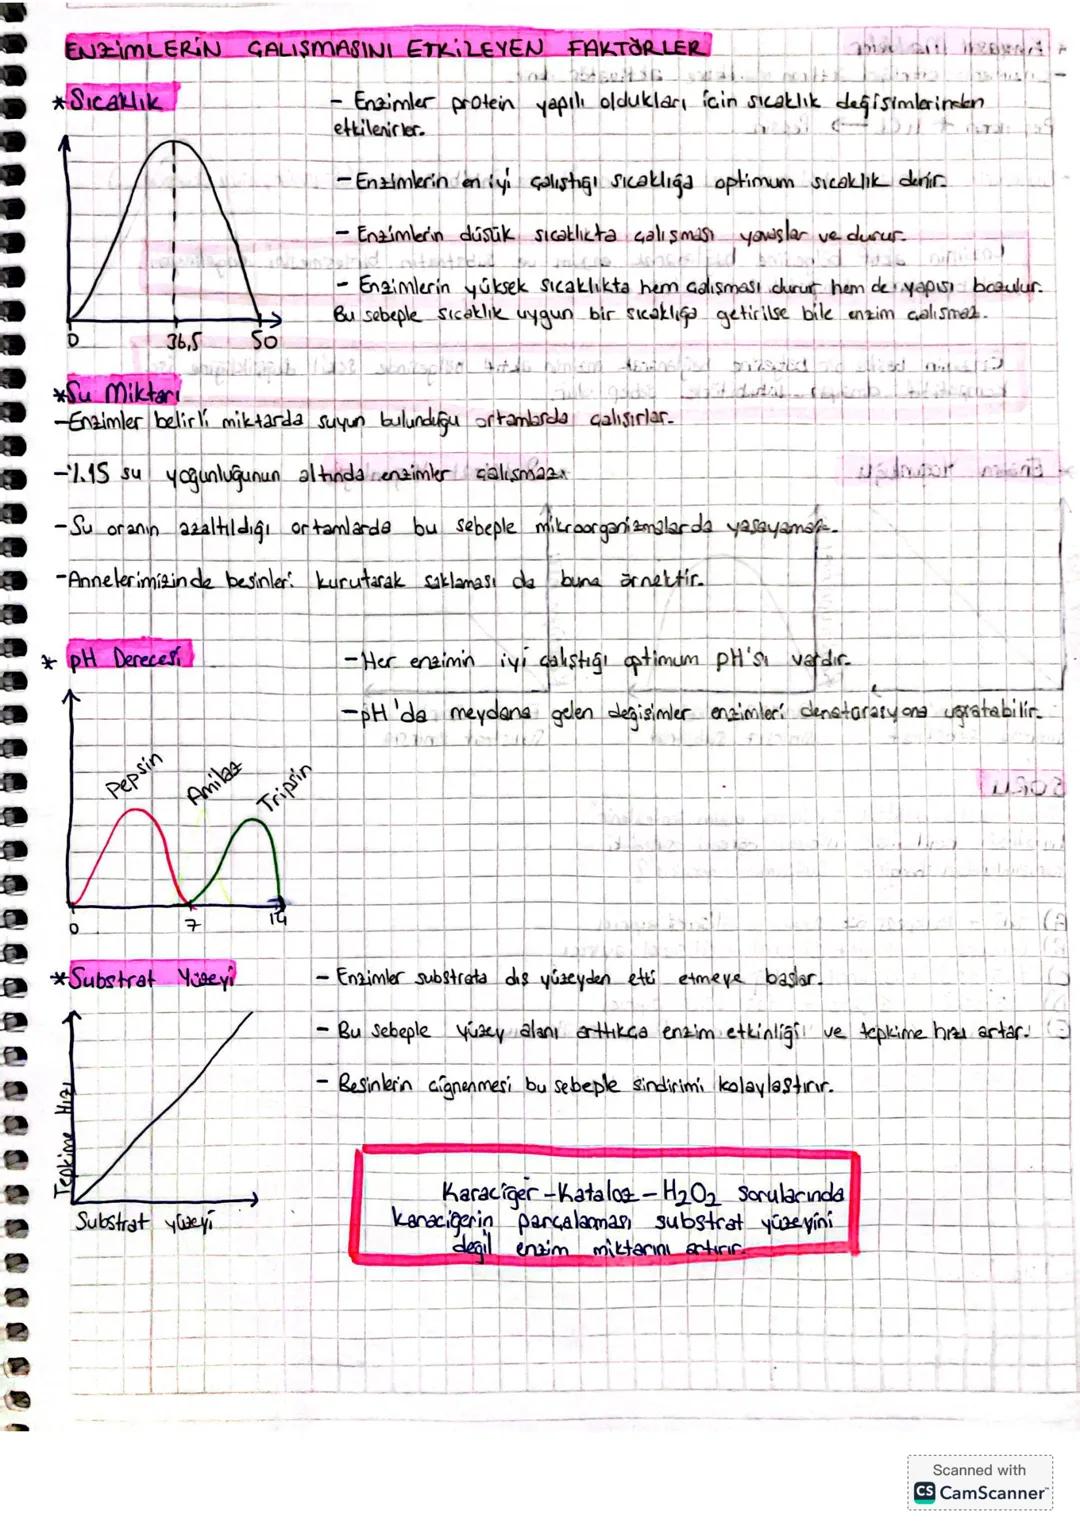 ENZİMLERİN ÇALIŞMASINI ETKİLEYEN FAKTÖRLER
*Sıcaklık
- Enzimler protein yapılı oldukları için sıcaklık değişimlerinden
etkilenirler.
- Enzimlerin en iyi çalıştığı sıcaklığa optimum sıcaklık denir.
- Enzimlerin düşük sıcaklıkta çalışması yavaşlar ve durur.
- Enzimlerin yüksek sıcaklıkta hem çalışması durur hem de yapısı bozulur.
Bu sebeple sıcaklık uygun bir sıcaklığa getirilse bile enzim çalışmaz.
0 36,5 50
*Su Miktarı
-Enzimler belirli miktarda suyun bulunduğu ortamlarda çalışırlar.
-%15 su yoğunluğunun altında enzimler çalışmaz.
-Su oranın azaltıldığı ortamlarda bu sebeple mikroorganizmalarda yaşayamaz.
-Annelerimizinde besinleri kurutarak saklaması da buna örnektir.
* pH Derecesi
-Her enzimin iyi çalıştığı optimum pH'sı vardır.
-pH'da meydana gelen değişimler enzimleri denatürasyona uğratabilir.
Pepsin Amilaz Tripsin
0 7 14
*Substrat Yüzeyi
- Enzimler substrata dış yüzeyden etki etmeye başlar.
- Bu sebeple yüzey alanı arttıkça enzim etkinliği ve tepkime hızı artar.
- Besinlerin çiğnenmesi bu sebeple sindirimi kolaylaştırır.
Tepkime Hızı
Substrat yüzeyi
Karaciğer-Katalaz-H2O2 sorularında
karaciğerin parçalanması substrat yüzeyini
değil enzim miktarını artırır.
Scanned with
CS CamScanner